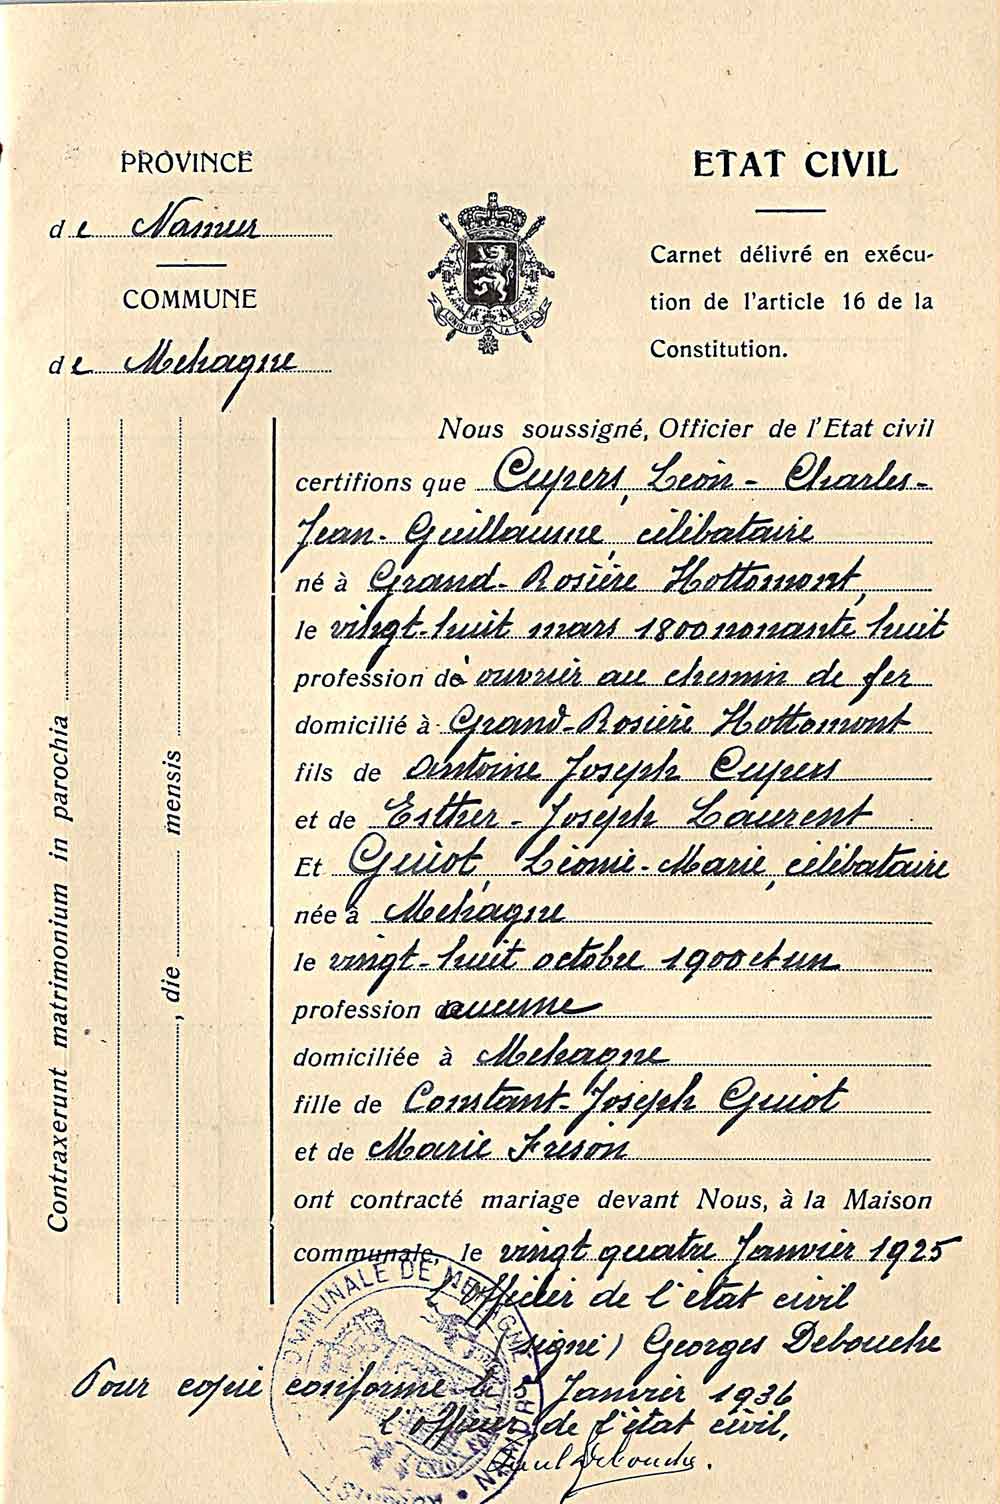 PROVINCE
de Namur
COMMUNE
de Mehagne
L'UNION FAIT LA FORCE
ETAT CIVIL
Carnet délivré en exécu-
tion de l'article 16 de la
Constitution.
Contraxerunt matrimonium in parochia
, die mensis
Nous soussigné, Officier de l'Etat civil
certifions que Cupers, Léon - Charles -
Jean - Guillaume, célibataire
né à Grand-Rosière Hottomont,
le vingt-huit mars 1800 nonante huit
profession de ouvrier au chemin de fer
domicilié à Grand-Rosière Hottomont
fils de Antoine Joseph Cupers
et de Esther - Joseph Laurent
Et Guiot, Léonie - Marie, célibataire
née à Mehagne
le vingt-huit octobre 1900 et un
profession de aucune
domiciliée à Mehagne
fille de Constant - Joseph Guiot
et de Marie Frison
ont contracté mariage devant Nous, à la Maison
communale, le vingt quatre Janvier 1925
L'officier de l'état civil
(signé) Georges Debouche
Pour copie conforme le Janvier 1936
L'officier de l'état civil,
Paul Debouche.
COMMUNALE DE MEHAGNE
NAMUR